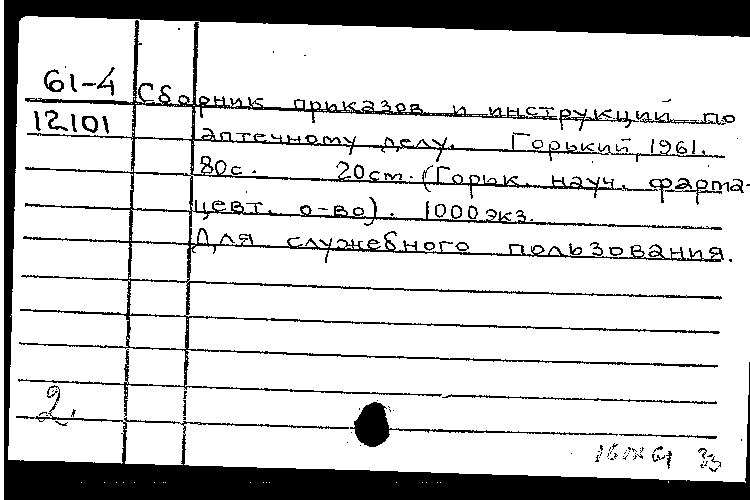 61-4 Сборник приказов и инструкций по
12101 аптечному делу. Горький, 1961.
80с. 20см. (Горьк. науч. фарма-
цевт. о-во). 1000 экз.
Для служебного пользования.
2.
33